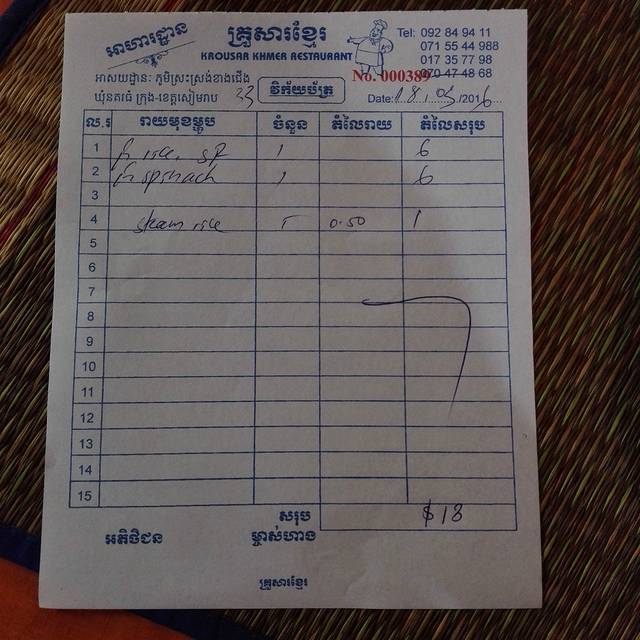 អាហារដ្ឋាន គ្រួសារខ្មែរ
KROUSAR KHMER RESTAURANT
Tel: 092 84 94 11
071 55 44 988
017 35 77 98
070 47 48 68
No. 000389
អាសយដ្ឋាន: ភូមិស្រះស្រង់ខាងជើង
ឃុំនគរធំ ក្រុង-ខេត្តសៀមរាប 33 វិក័យប័ត្រ Date: 18/05/2016
ល.រ រាយមុខម្ហូប ចំនួន តំលៃរាយ តំលៃសរុប
1 fr rice. sp 1 6
2 fr spinach 1 6
3
4 steam rice 0.50 1
5
6
7
8
9
10
11
12
13
14
15
សរុប $13
អតិថិជន ម្ចាស់ហាង
គ្រួសារខ្មែរ